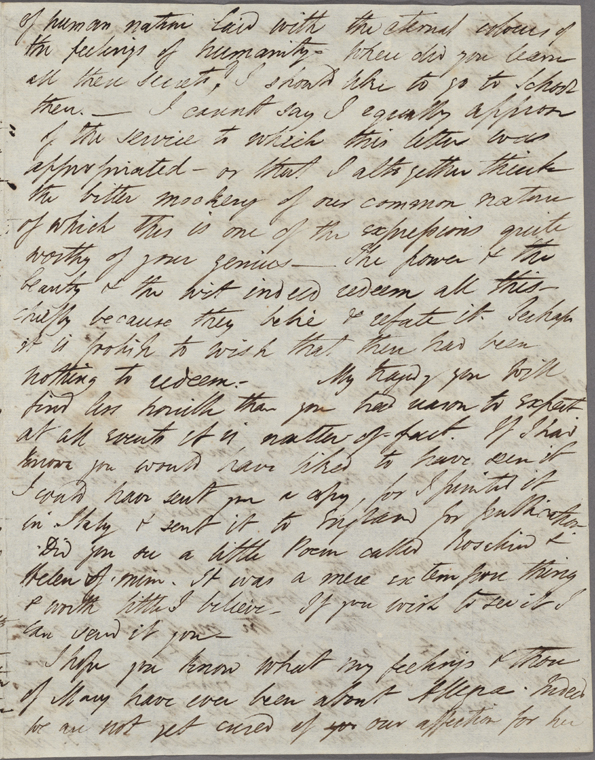 of human nature laid with the eternal colours of
the feelings of humanity. Where did you learn
all these secrets, I should like to go to school
there. — I cannot say I equally approve
of the service to which this letter was
appropriated — or that I altogether think
the bitter mockery of our common nature
of which this is one of the expressions quite
worthy of your genius — The power & the
beauty & the wit indeed redeem all this —
chiefly because they belie & refute it Perhaps
it is foolish to wish that there had been
nothing to redeem. — My tragedy you will
find less horrible than you had reason to expect.
at all events it is matter-of-fact. If I had
known you would have liked to have seen it
I could have sent you a copy, for I printed it
in Italy & sent it to England for publication
Did you see a little Poem called Rosalind &
Helen of mine. It was a mere extempore thing
& worth little I believe — If you wish to see it I
can send it you —
I hope you know what my feelings & those
of Mary have ever been about Allegra. Indeed
we are not yet cured of our affection for her